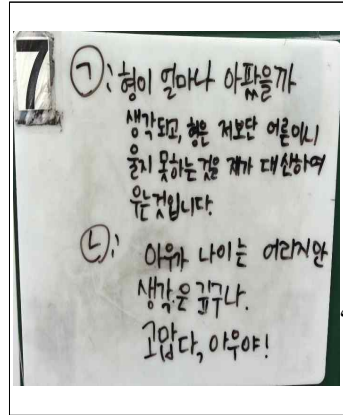 7
㉠: 형이 얼마나 아팠을까
생각되고, 형은 저보단 어른이니
울지 못하는 것을 제가 대신하여
우는것입니다.
㉡: 아우가 나이는 어리지만
생각은 깊구나.
고맙다, 아우야!